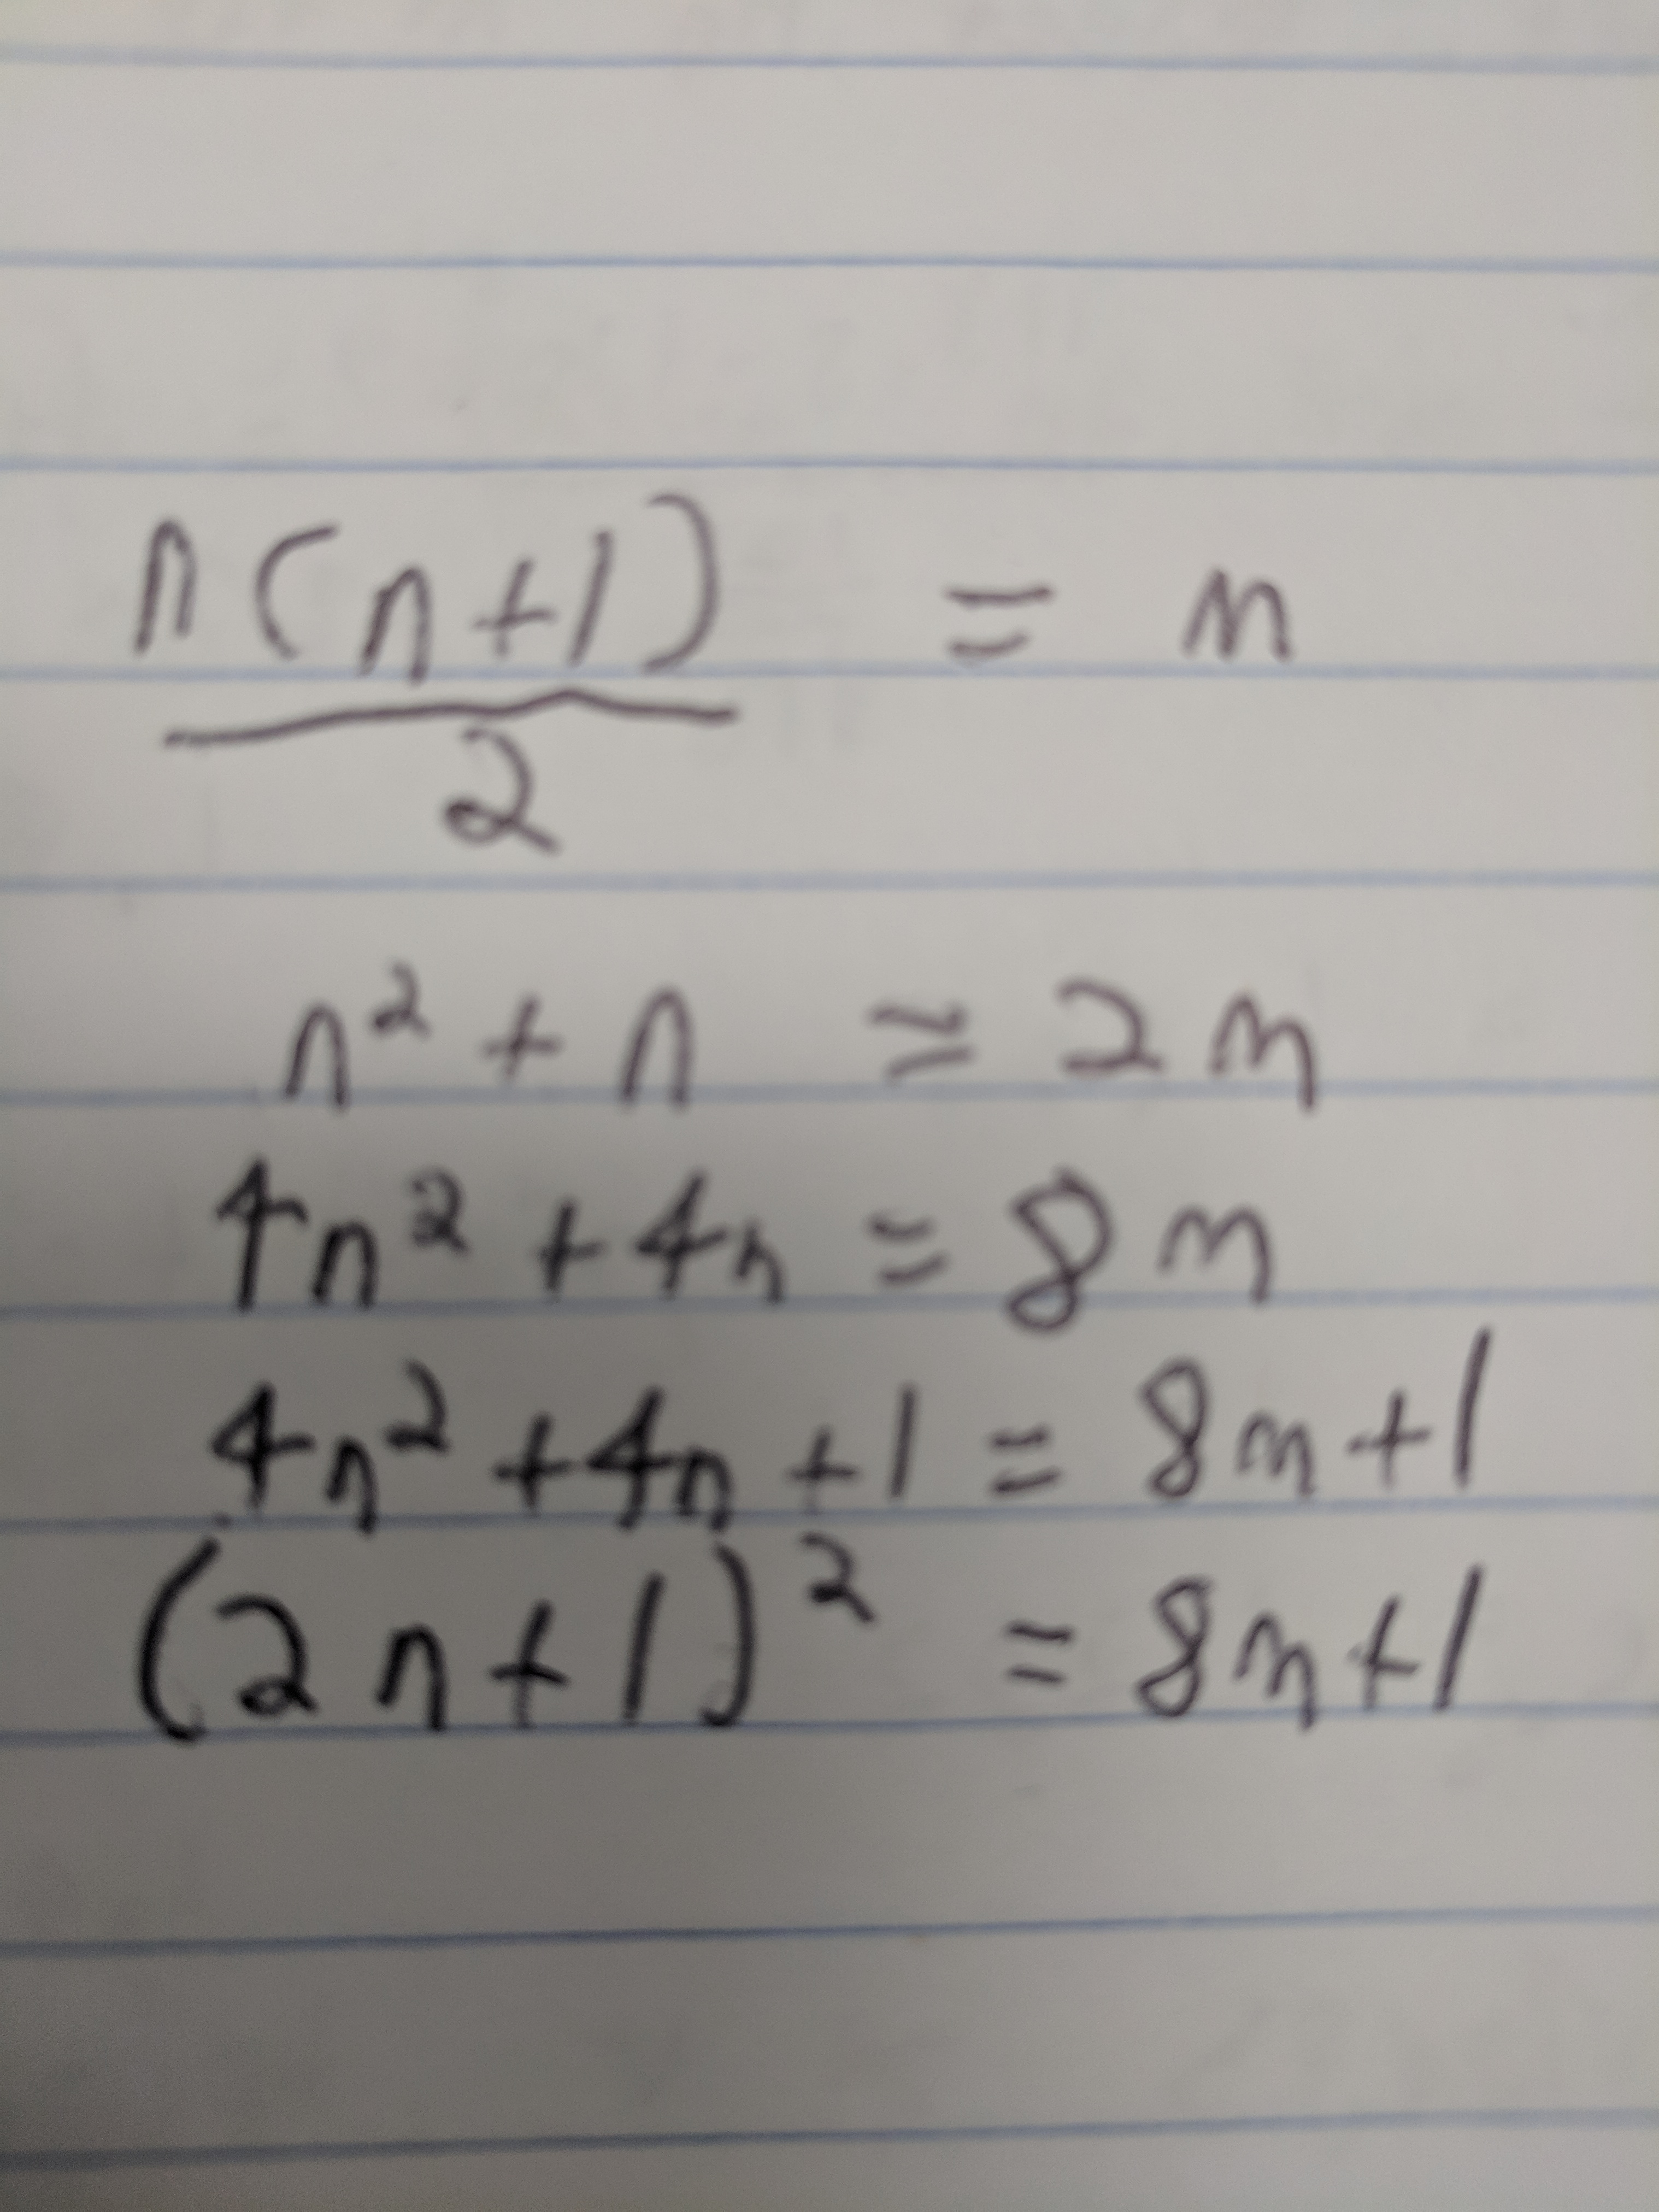 n(n+1)/2 = m
n² + n = 2m
4n² + 4n = 8m
4n² + 4n + 1 = 8m+1
(2n+1)² = 8m+1